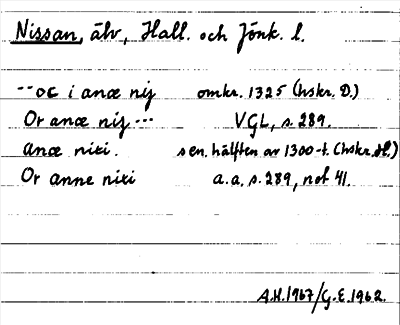 Nissan, älv, Hall. och Jönk. l.
--oc i anæ nij omkr. 1325 (hskr. D.)
Or anæ nij --- VGL, s. 289.
anæ nixi. sen. hälften av 1300-t. (hskr. H.)
Or anne nixi a.a. s. 289, not 41.
A.H. 1967/G.E. 1962.